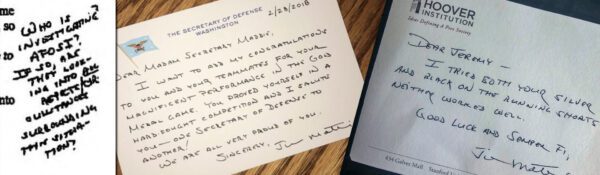 me
so
to
nto
WHO IS
INVESTIGATING
AFOSI?
IF SO, ARE
THEY LOOK-
ING INTO ALL
SURROUNDING
THIS SITUA-
TION?
THE SECRETARY OF DEFENSE
WASHINGTON
2/28/2018
DEAR MADAM SECRETARY MADDIE,
I WANT TO ADD MY CONGRATULATIONS
TO YOU AND YOUR TEAMMATES FOR YOUR
MAGNIFICENT PERFORMANCE IN THE GOLD
MEDAL GAME. YOU PROVED YOURSELF IN A
HARD FOUGHT COMPETITION AND I SALUTE
YOU—ONE SECRETARY OF DEFENSE TO
ANOTHER!
WE ARE ALL VERY PROUD OF YOU.
SINCERELY, Jim Mattis
HOOVER
INSTITUTION
Ideas Defining A Free Society
DEAR JEREMY—
I TRIED BOTH YOUR SILVER
AND BLACK ON THE RUNNING SHORTS
NEITHER WORKED WELL.
GOOD LUCK AND SEMPER FI,
Jim Mattis
434 Galvez Mall Stanford